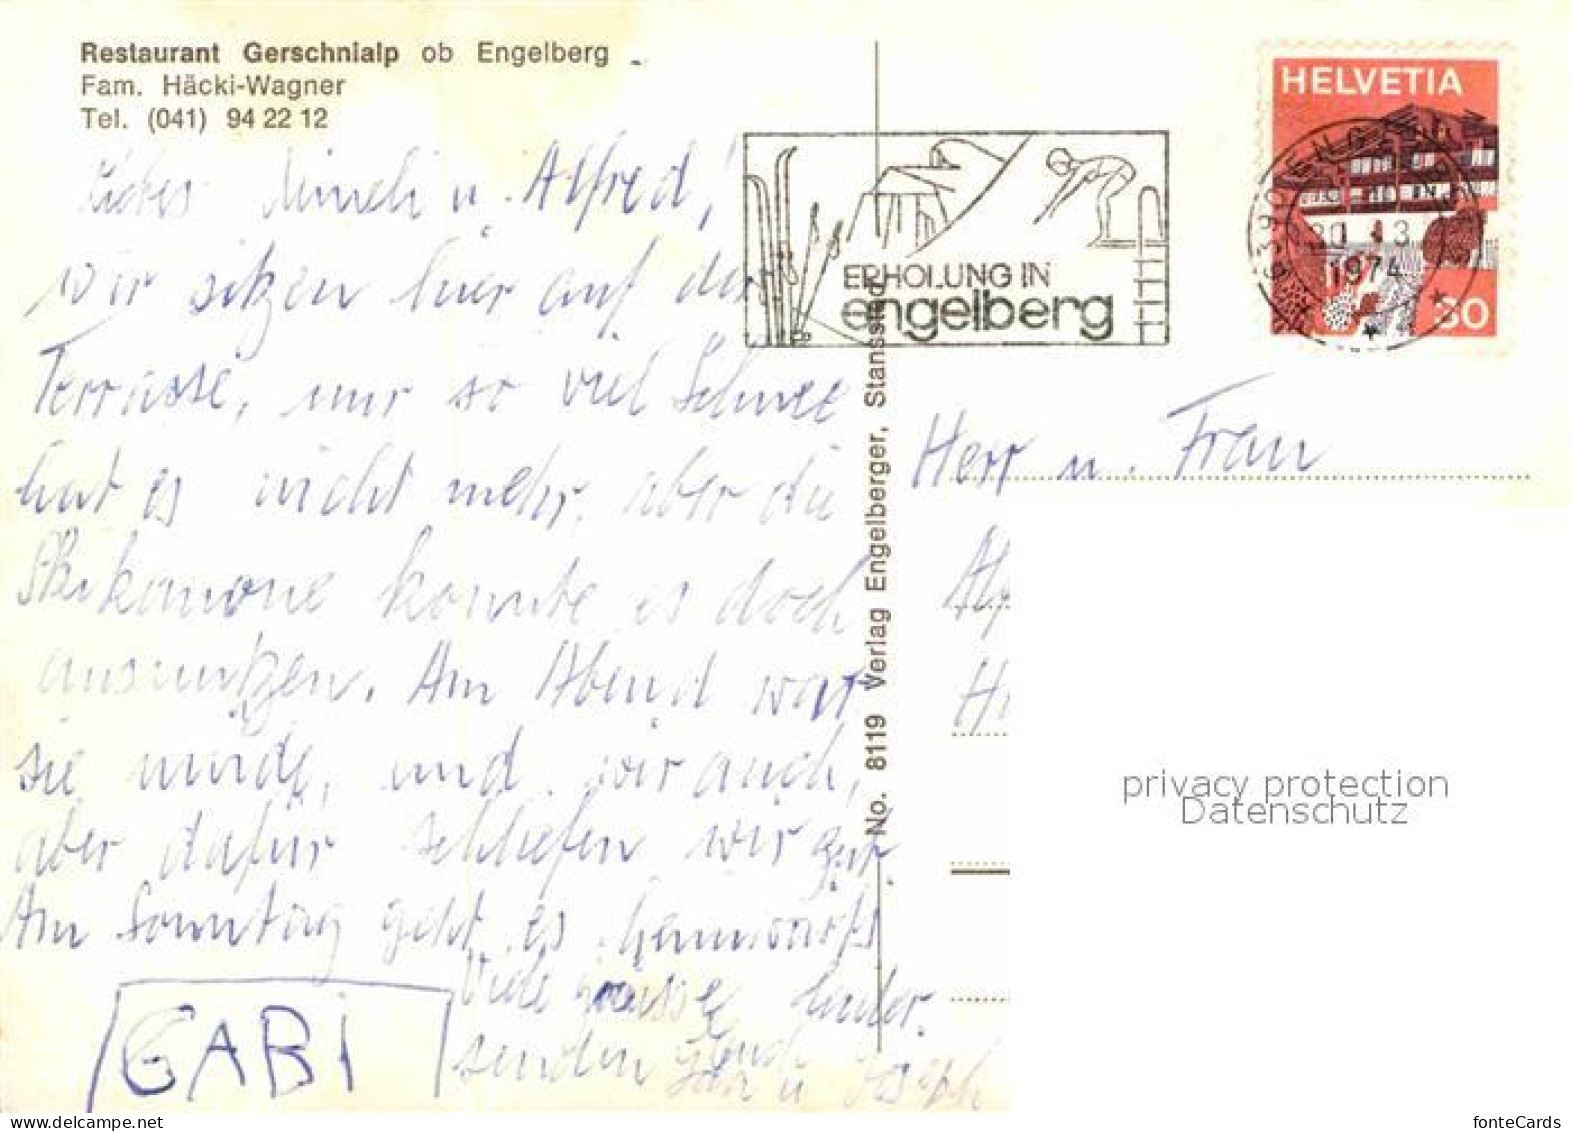 Restaurant Gerschnialp ob Engelberg
Fam. Häcki-Wagner
Tel. (041) 94 22 12
HELVETIA
30
6390 ENGELBERG
1974
ERHOLUNG IN
engelberg
No. 8119 Verlag Engelberger, Stansstad
Liebes Mineli u. Alfred!
wir sitzen hier auf der
Terrasse, nur so viel Schnee
hat es nicht mehr, aber die
Skikanone konnte es doch
ausnutzen. Am Abend war
sie müde, und wir auch,
aber dafür schliefen wir gut.
Am Sonntag geht es heimwärts
Viele grüsse
senden
Ida u Joseph
GABI
Herr u. Frau
privacy protection
Datenschutz
fonteCards